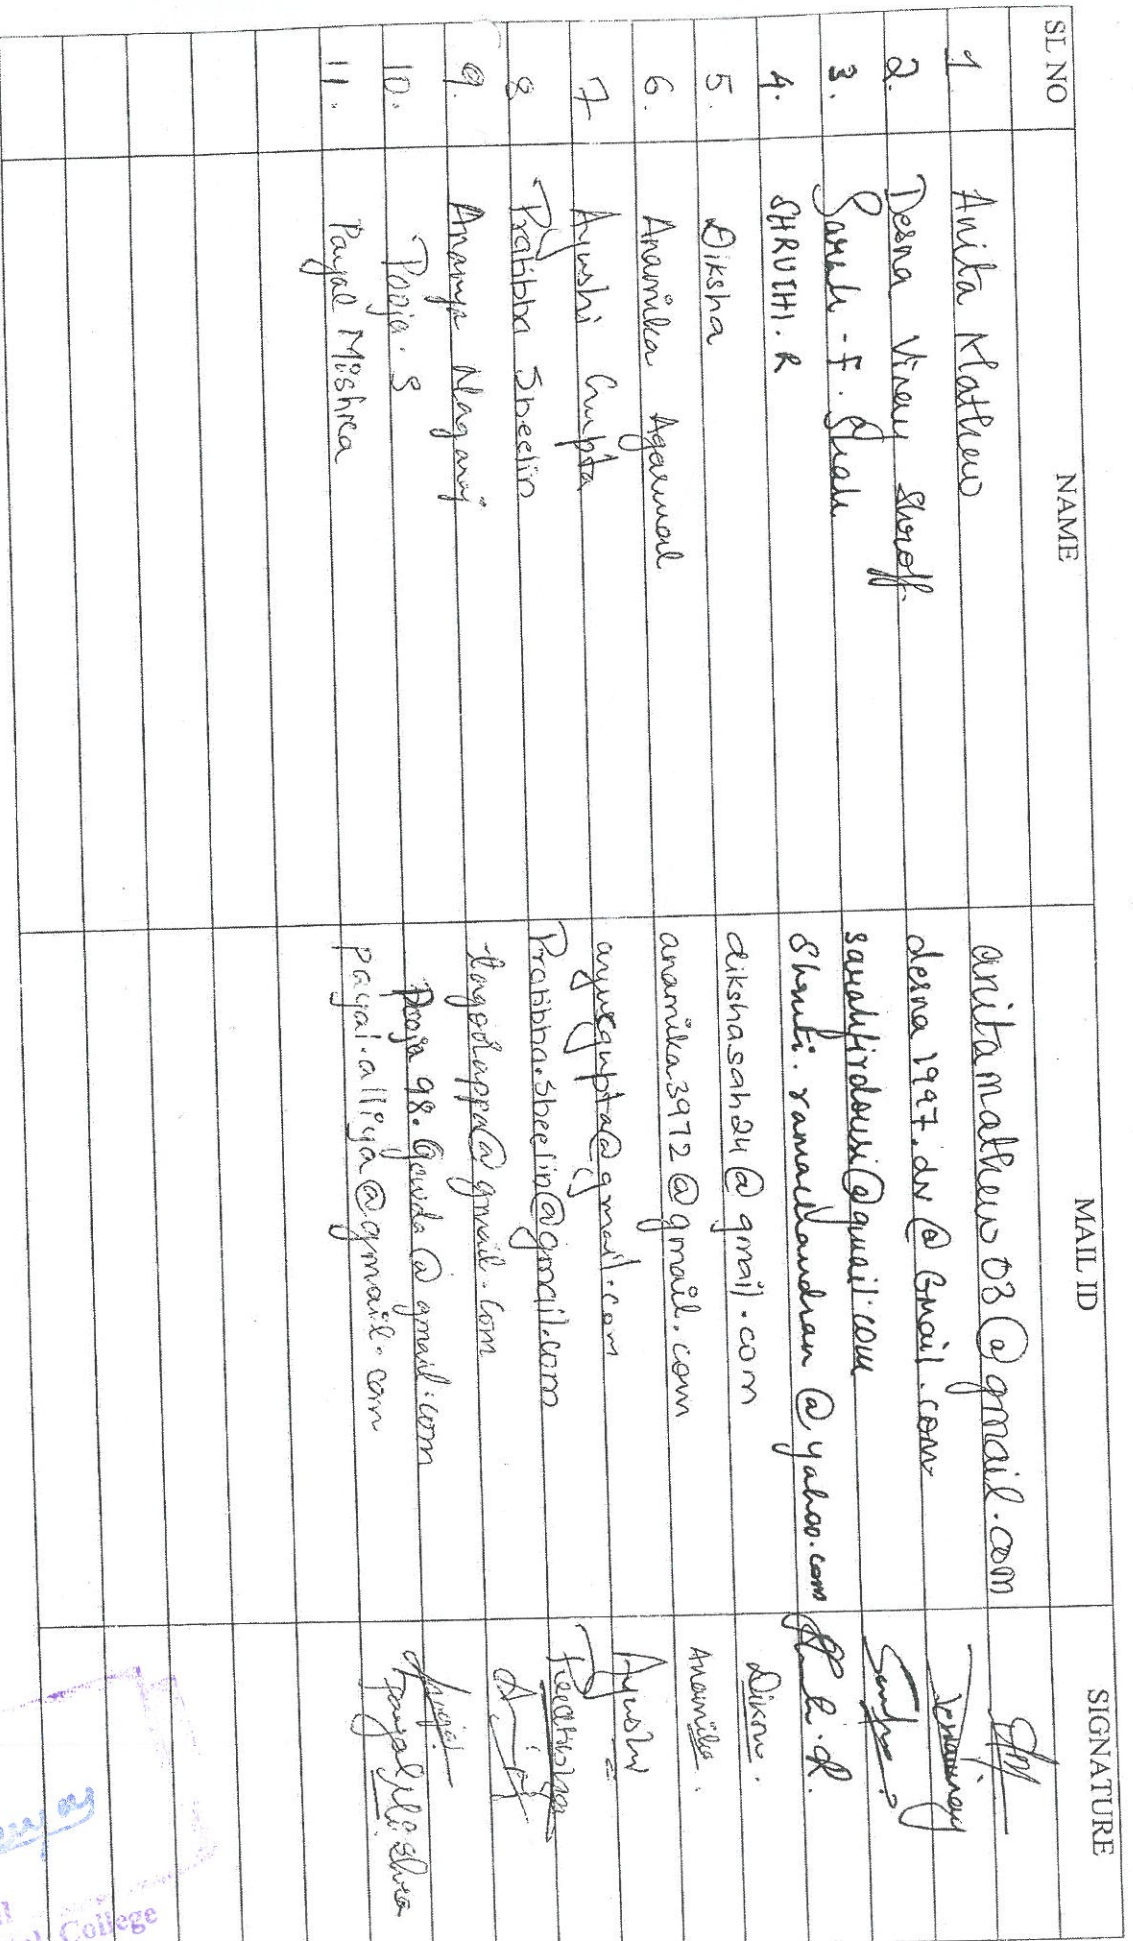 SL NO NAME MAIL ID SIGNATURE
1 Anita Mathew anitamathew03@gmail.com
2. Desna Vinay Shroff. desna1997.dv@Gmail.com
3. Sarah.F.Shah sarahfirdousi@gmail.com
4. SHRUTHI.R Shruti.ramachandran@yahoo.com
5. Diksha dikshasah24@gmail.com
6. Anamika Agarwal anamika3972@gmail.com Anamika.
7 Ayushi Gupta ayusgupta@gmail.com Ayushi
8 Pratibha Sbeelin Pratibha.sbeelin@gmail.com
9. Ananya Nagaraj @gmail.com
10. Pooja.S Pooja98.Gowda@gmail.com
11. Payal Mishra payal.alliya@gmail.com Payal Mishra
College